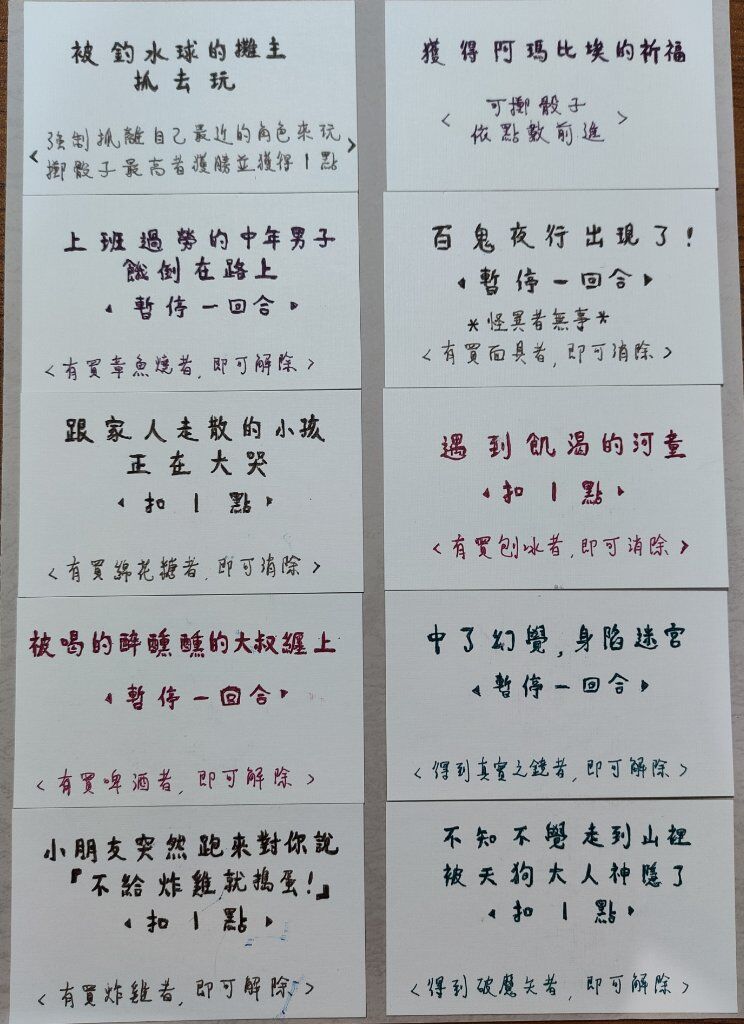 被釣水球的攤主
抓去玩
<強制抓離自己最近的角色來玩
擲骰子最高者獲勝並獲得1點>
上班過勞的中年男子
餓倒在路上
<暫停一回合>
<有買章魚燒者,即可解除>
跟家人走散的小孩
正在大哭
<扣1點>
<有買綿花糖者,即可消除>
被喝的醉醺醺的大叔纏上
<暫停一回合>
<有買啤酒者,即可解除>
小朋友突然跑來對你說
『不給炸雞就搗蛋!』
<扣1點>
<有買炸雞者,即可解除>
獲得阿瑪比埃的祈福
<可擲骰子
依點數前進>
百鬼夜行出現了!
<暫停一回合>
*怪異者無事*
<有買面具者,即可消除>
遇到飢渴的河童
<扣1點>
<有買刨冰者,即可消除>
中了幻覺,身陷迷宮
<暫停一回合>
<得到真實之鏡者,即可解除>
不知不覺走到山裡
被天狗大人神隱了
<扣1點>
<得到破魔矢者,即可解除>